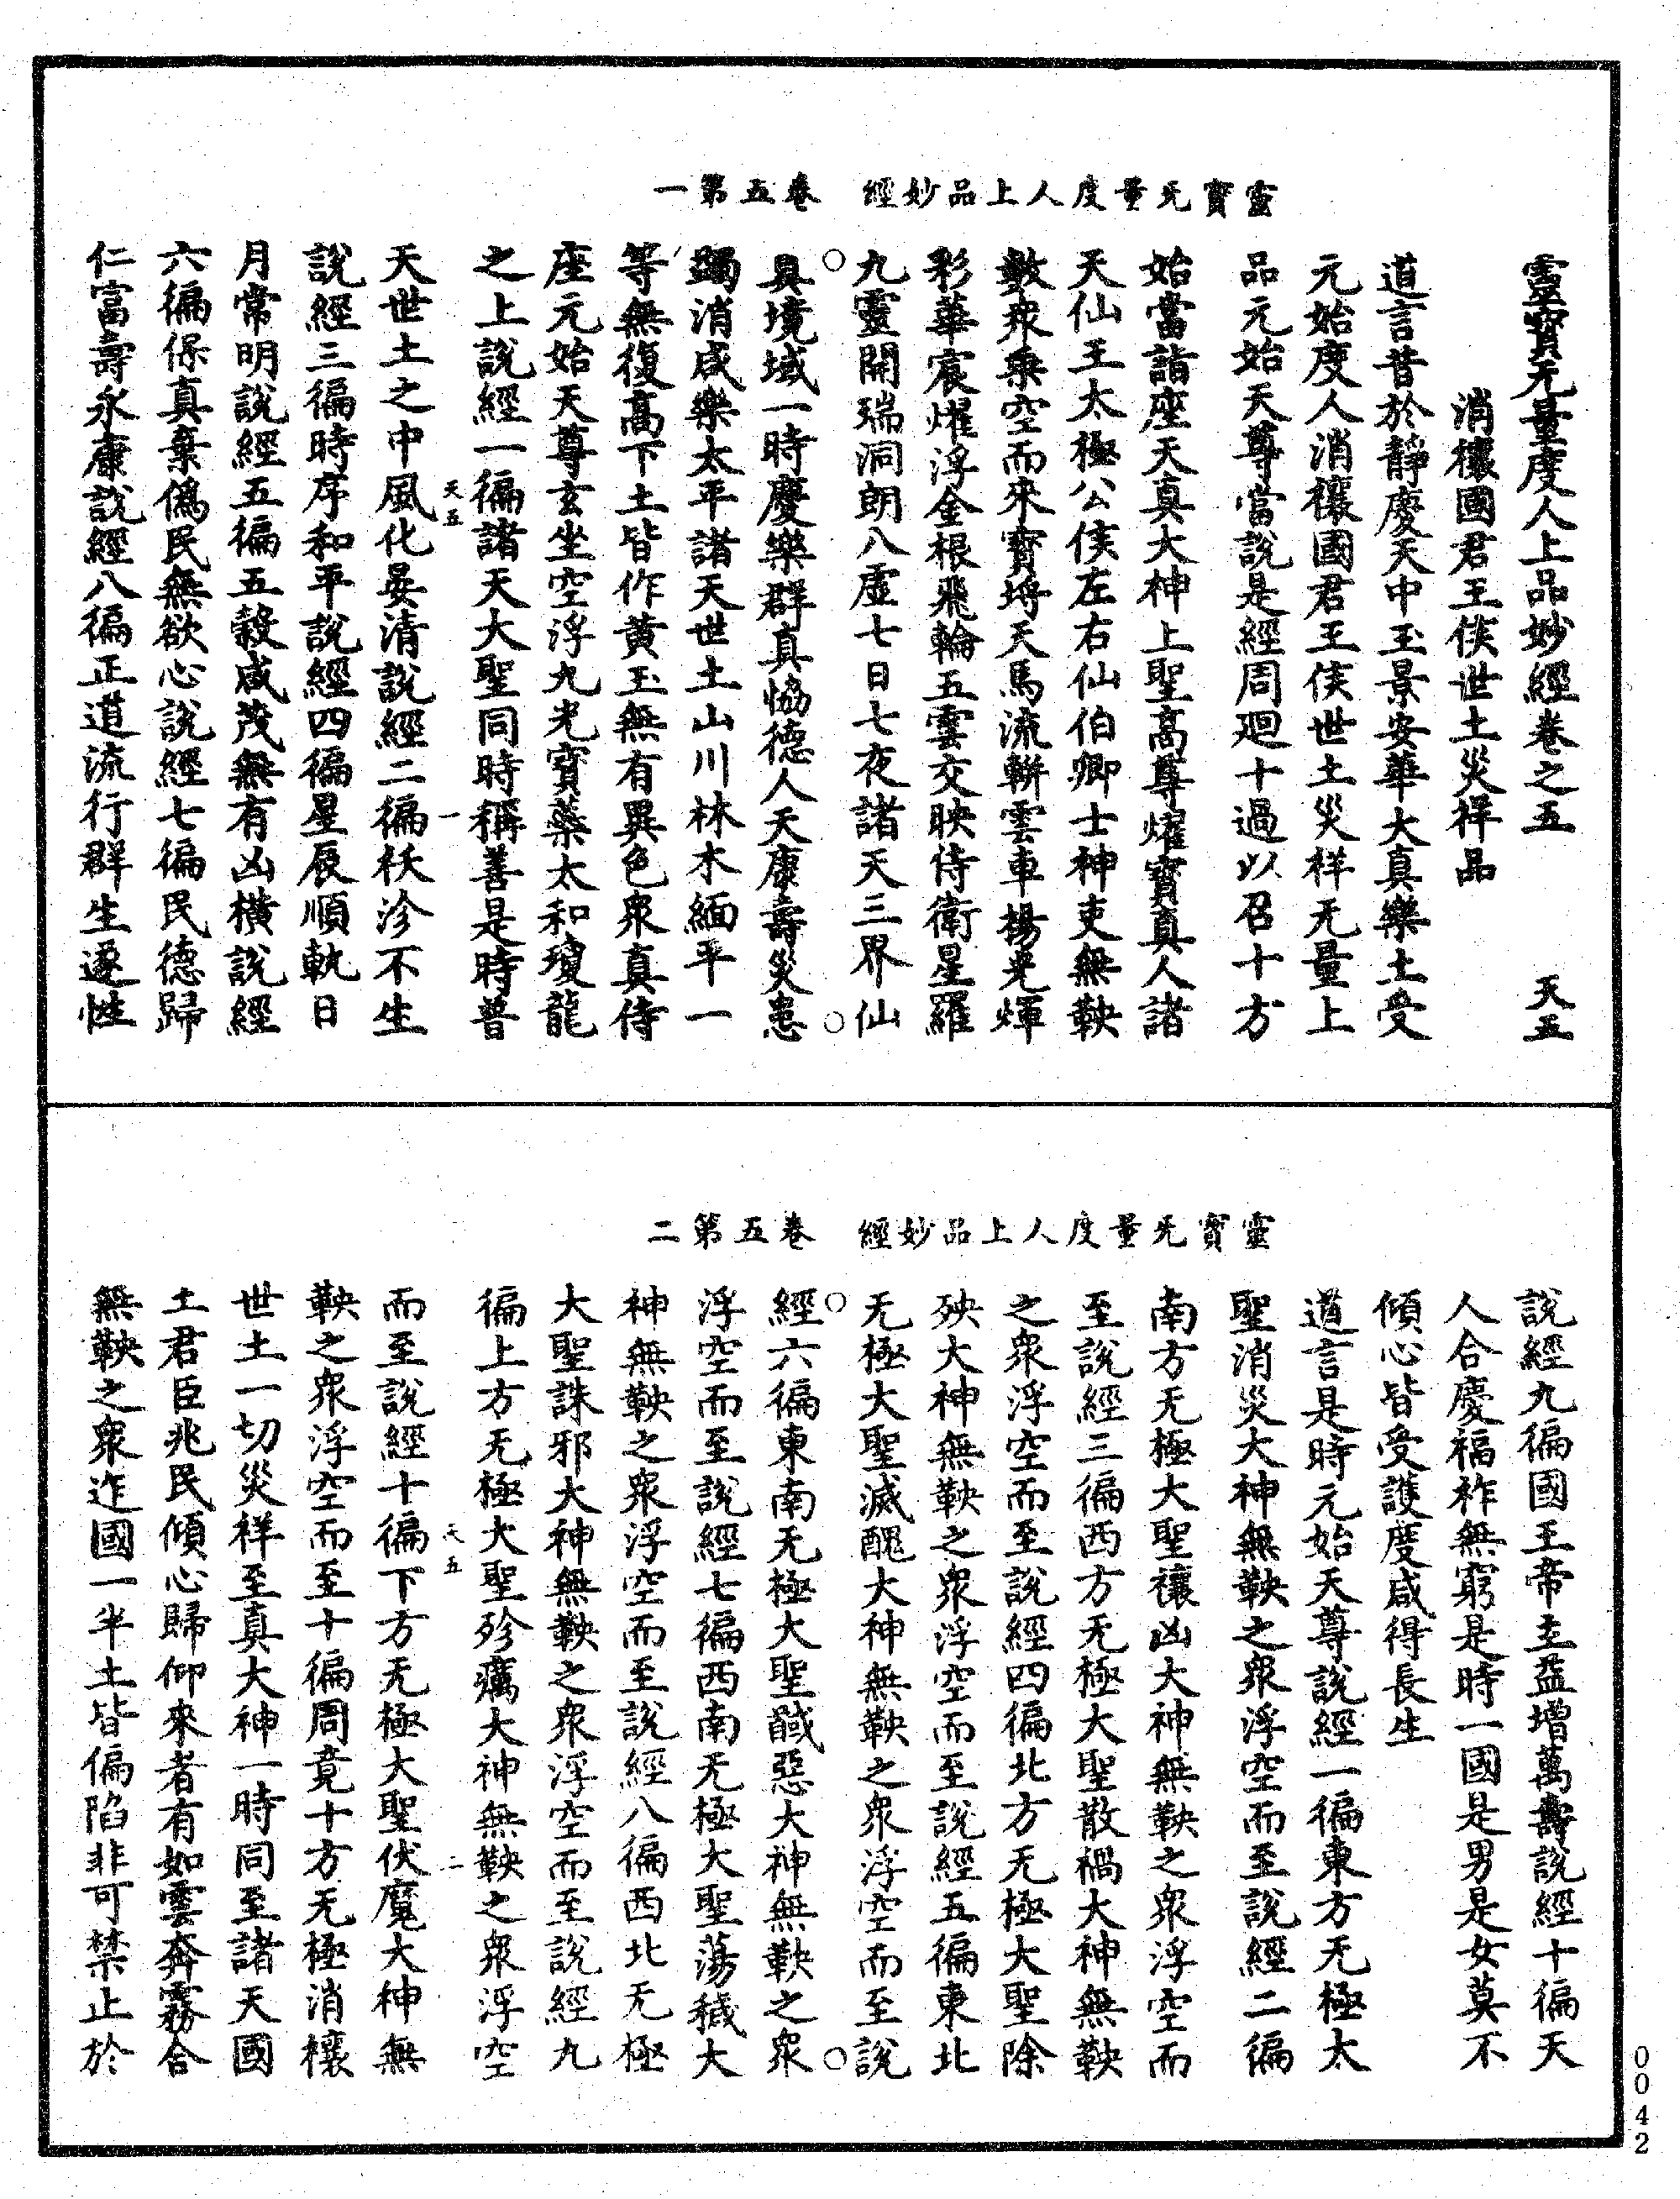 靈寶无量度人上品妙經　卷五第一
靈寶无量度人上品妙經卷之五　天五
消禳國君王侯世土災祥品
道言昔於靜慶天中玉景安華大真樂土受
元始度人消禳國君王侯世土災祥无量上
品元始天尊當說是經周廻十過以召十方
始當詣座天真大神上聖高尊燿寶真人諸
天仙王太極公侯左右仙伯卿士神吏無鞅
數衆乗空而來寶埓天馬流輧雲車揚光煇
彩華宸燿浮金根飛輪五雲交映侍衛星羅
九靈開瑞洞朗八虛七日七夜諸天三界仙
具境域一時慶樂群真協德人天康壽災患
蠲消咸樂太平諸天世土山川林木緬平一
等無復高下土皆作黃玉無有異色衆真侍
座元始天尊玄坐空浮九光寶藥太和瓊龍
之上說經一徧諸天大聖同時稱善是時普
天五　一
天世土之中風化晏清說經二徧祅沴不生
說經三徧時序和平說經四徧星辰順軌日
月常明說經五徧五穀咸茂無有凶橫說經
六徧保真棄僞民無欲心說經七徧民德歸
仁富壽永康說經八徧正道流行群生遂性
靈寶无量度人上品妙經　卷五第二
說經九徧國王帝主益增萬壽說經十徧天
人合慶福祚無窮是時一國是男是女莫不
傾心皆受護度咸得長生
道言是時元始天尊說經一徧東方无極太
聖消災大神無鞅之衆浮空而至說經二徧
南方无極大聖禳凶大神無鞅之衆浮空而
至說經三徧西方无極大聖散禍大神無鞅
之衆浮空而至說經四徧北方无極大聖除
殃大神無鞅之衆浮空而至說經五徧東北
无極大聖滅醜大神無鞅之衆浮空而至說
經六徧東南无極大聖馘惡大神無鞅之衆
浮空而至說經七徧西南无極大聖蕩穢大
神無鞅之衆浮空而至說經八徧西北无極
大聖誅邪大神無鞅之衆浮空而至說經九
徧上方无極大聖殄癘大神無鞅之衆浮空
天五　二
而至說經十徧下方无極大聖伏魔大神無
鞅之衆浮空而至十徧周竟十方无極消禳
世土一切災祥至真大神一時同至諸天國
土君臣兆民傾心歸仰來者有如雲奔霧合
無鞅之衆迮國一半土皆偏陷非可禁止於
0042